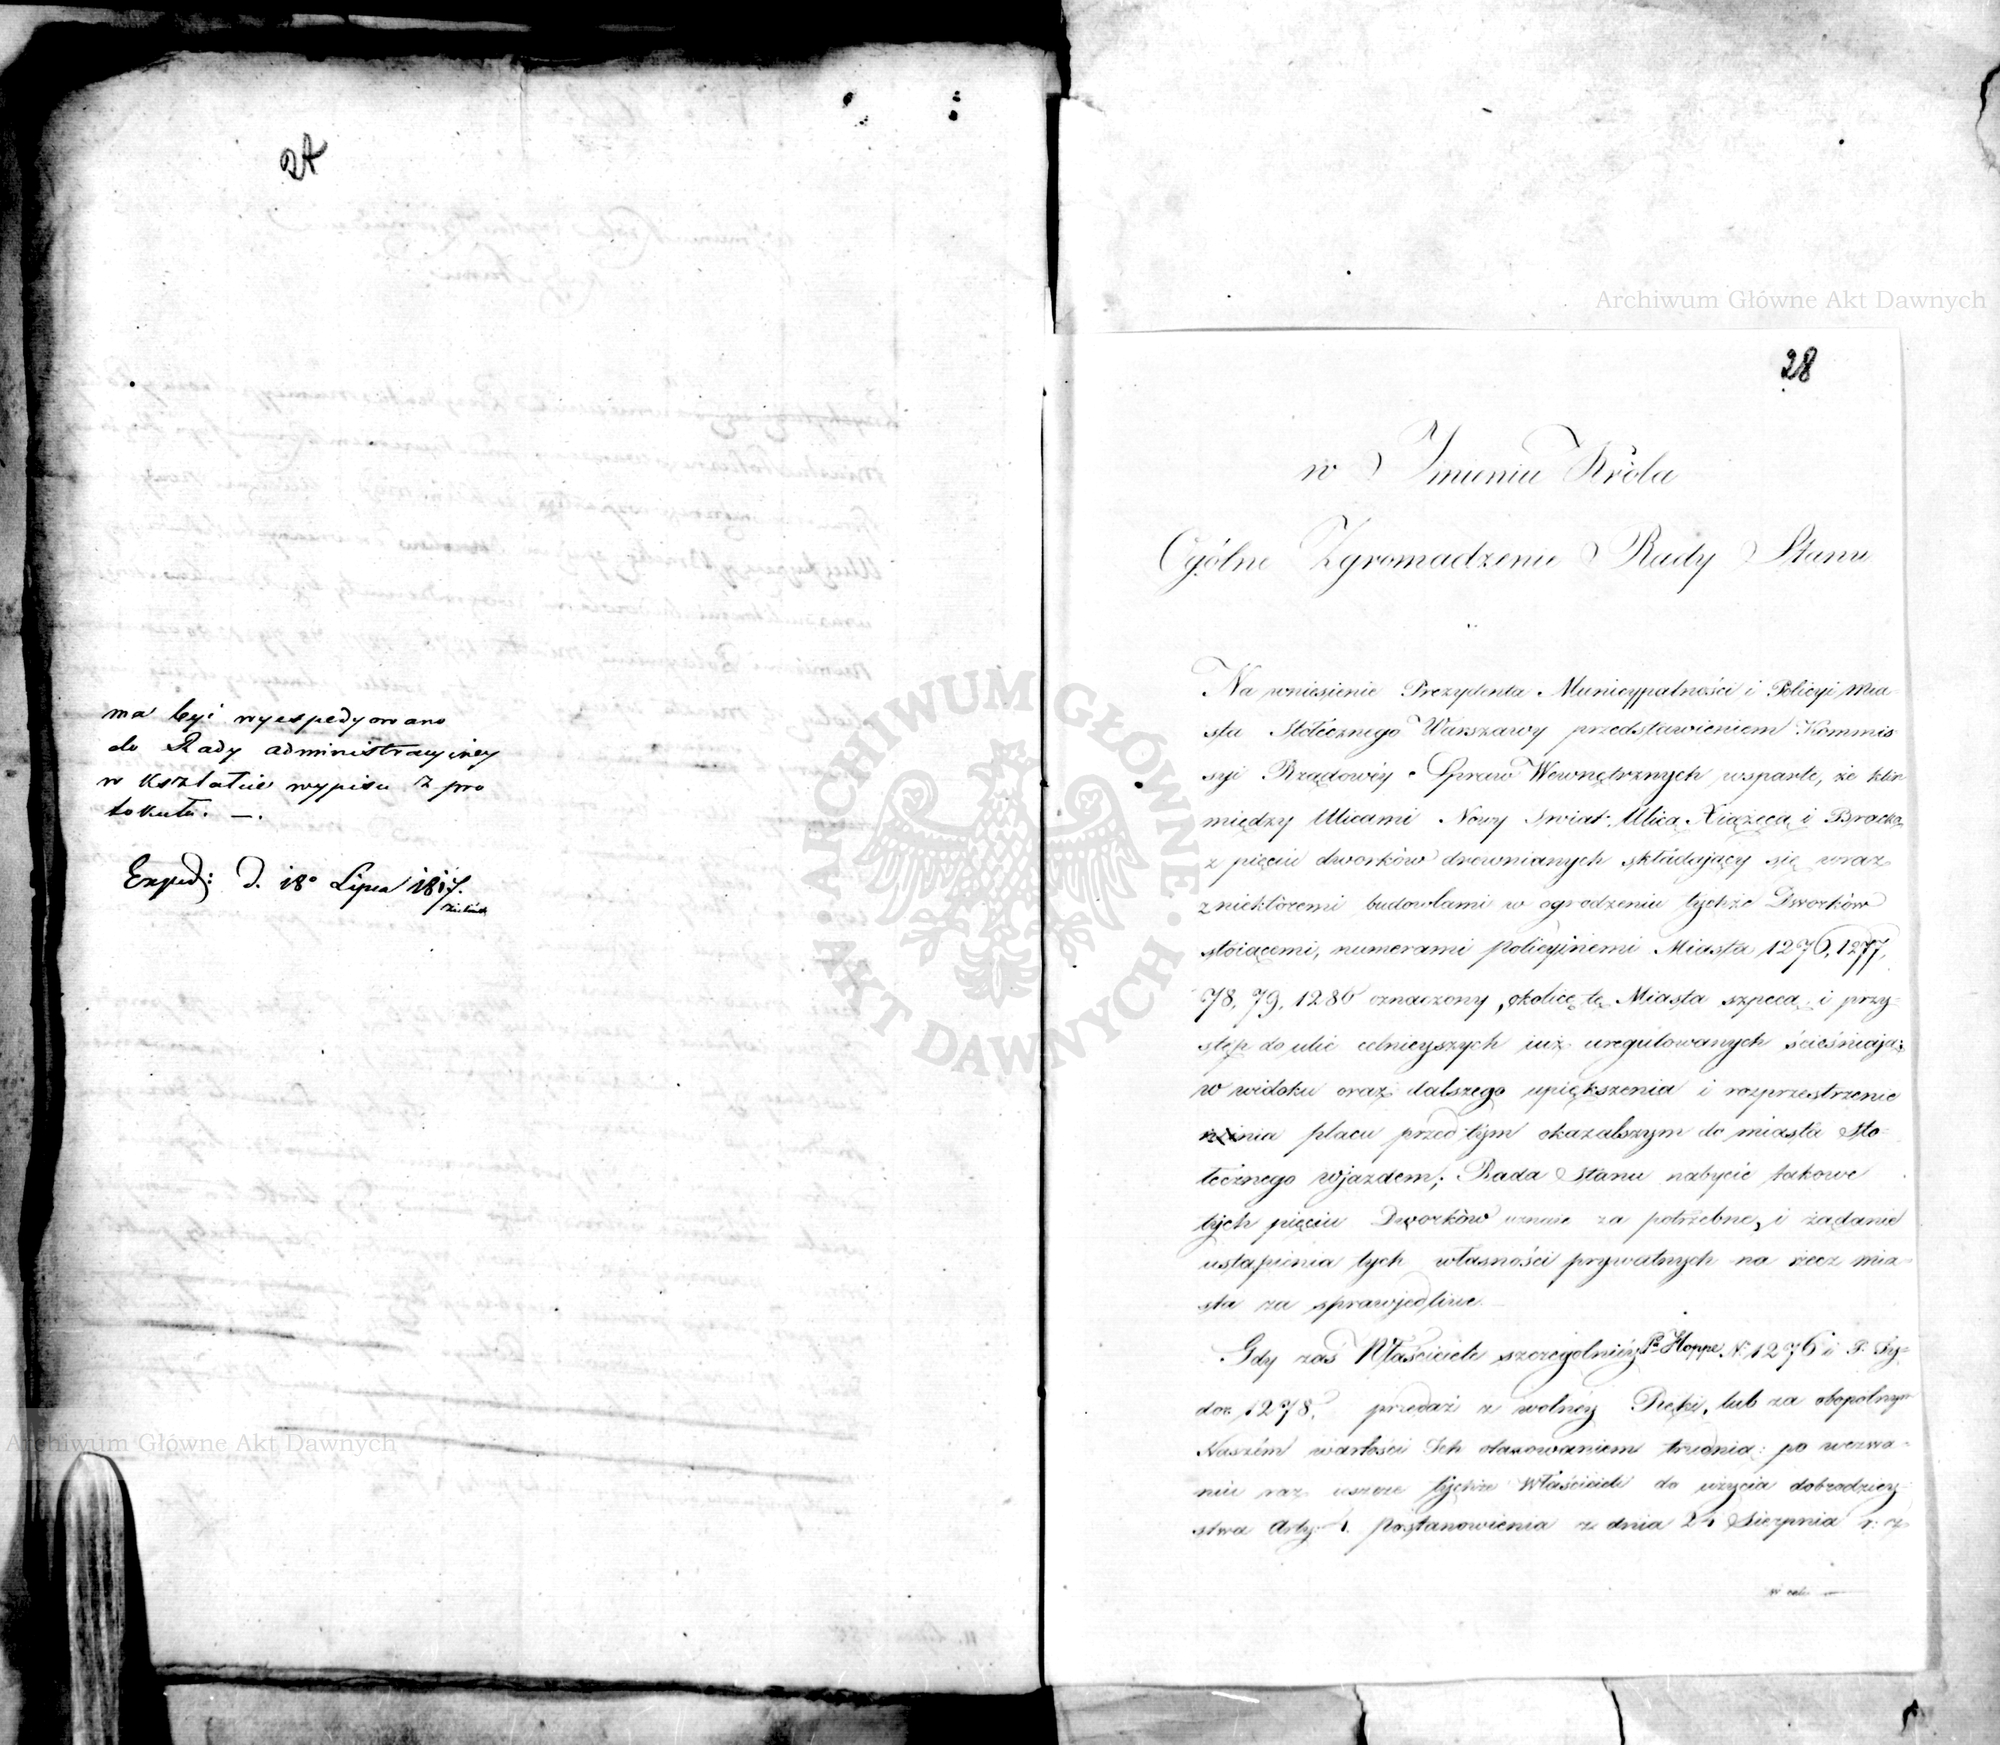 27
ma być wyexpedyowane
do Rady administracyiney
w kształcie wypisu z pro
tokułu. —.
Exped: D. 18º Lipca 1817.
28
w Imieniu Króla
Ogólne Zgromadzenie Rady Stanu
Na wniesienie Prezydenta Municypalności i Policyi Mia
sta Stołecznego Warszawy przedstawieniem Kommis
syi Rządowéy Spraw Wewnętrznych wsparte, że klin
między Ulicami Nowy Swiat, Ulicą Xiążęcą i Bracką
z pięciu dworków drewnianych składaiący się wraz
z niektóremi budowlami w ogrodzeniu tychże Dworków
stoiącemi, numerami policyinemi Miasta 1276, 1277,
78, 79, 1280 oznaczony, okolicę tę Miasta szpeca i przy-
stęp do ulic celnieyszych iuż uregulowanych ścieśniaią;
w widoku oraz dalszego upiększenia i rozprzestrzenie
nia placu przed tym okazalszym do miasta Sto-
łecznego wjazdem; Rada Stanu nabycie takowe
tych pięciu Dworków uznaie za potrzebne, i żądanie
ustąpienia tych własności prywatnych na rzecz mia-
sta za sprawjedliwe.
Gdy zaś Właściciele szczególniéy Pº Hoppe N. 1276 i P. Fy-
dor 1278, przedaż z wolnéy Ręki, lub za obopólnym
Naszém wartości Ich otaxowaniem trudnią: po wezwa-
niu raz ieszcze tychże Właścicieli do użycia dobrodziey-
stwa Arty: 4. Postanowienia z dnia 24 Sierpnia r: z
w cale
Archiwum Główne Akt Dawnych
Archiwum Główne Akt Dawnych
ARCHIWUM GŁÓWNE AKT DAWNYCH